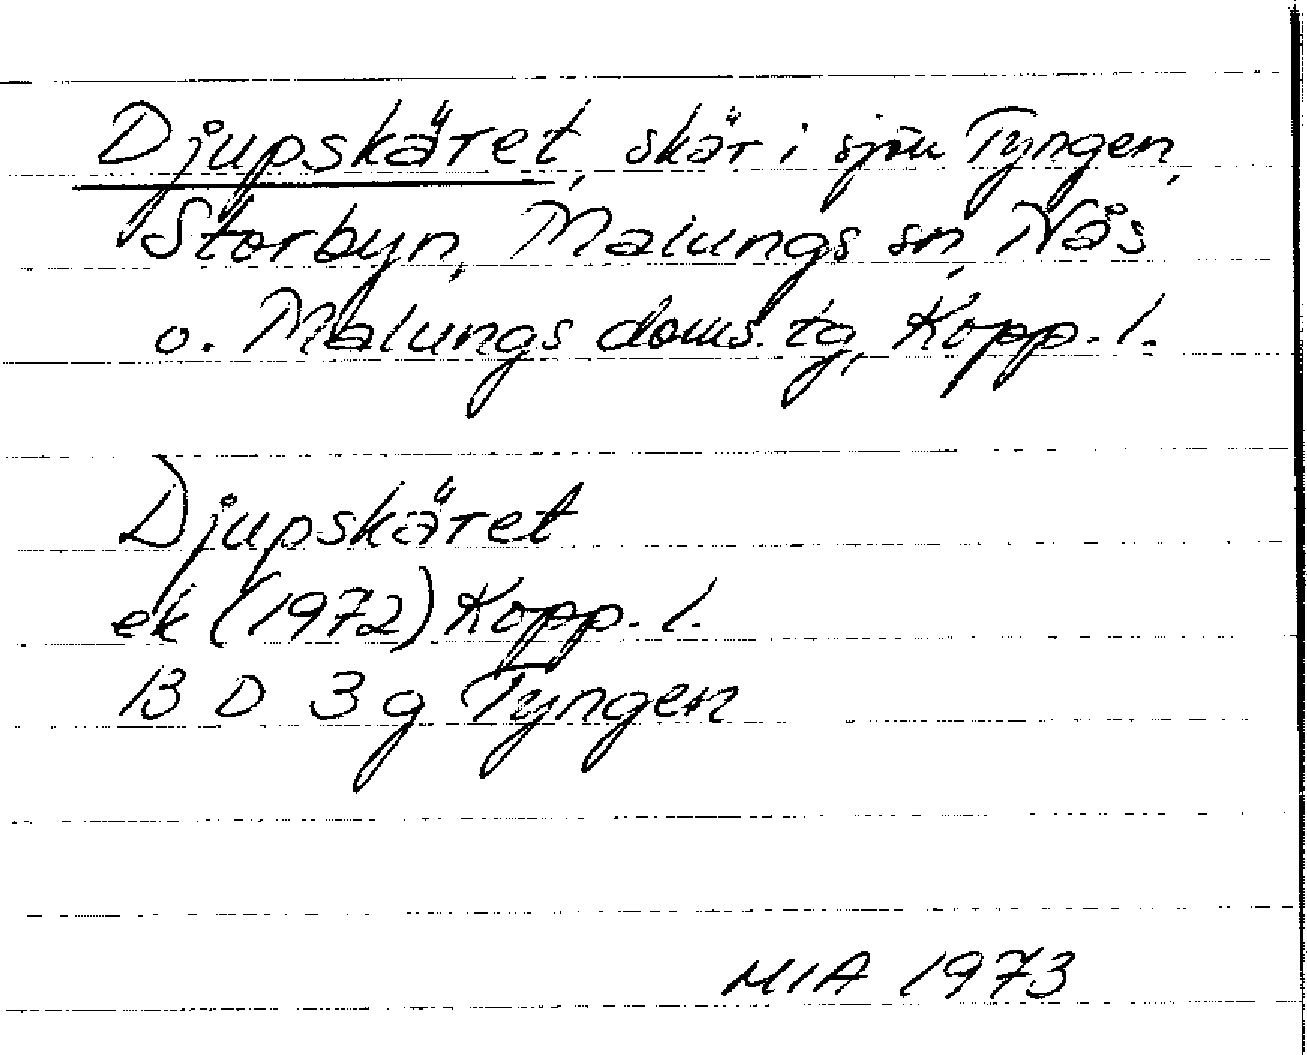 Djupskäret, skär i sjön Tyngen,
Storbyn, Malungs sn, Nås
o. Malungs doms. tg, Kopp. l.
Djupskäret
ek (1972) Kopp. l.
13 D 3 g Tyngen
MIA 1973